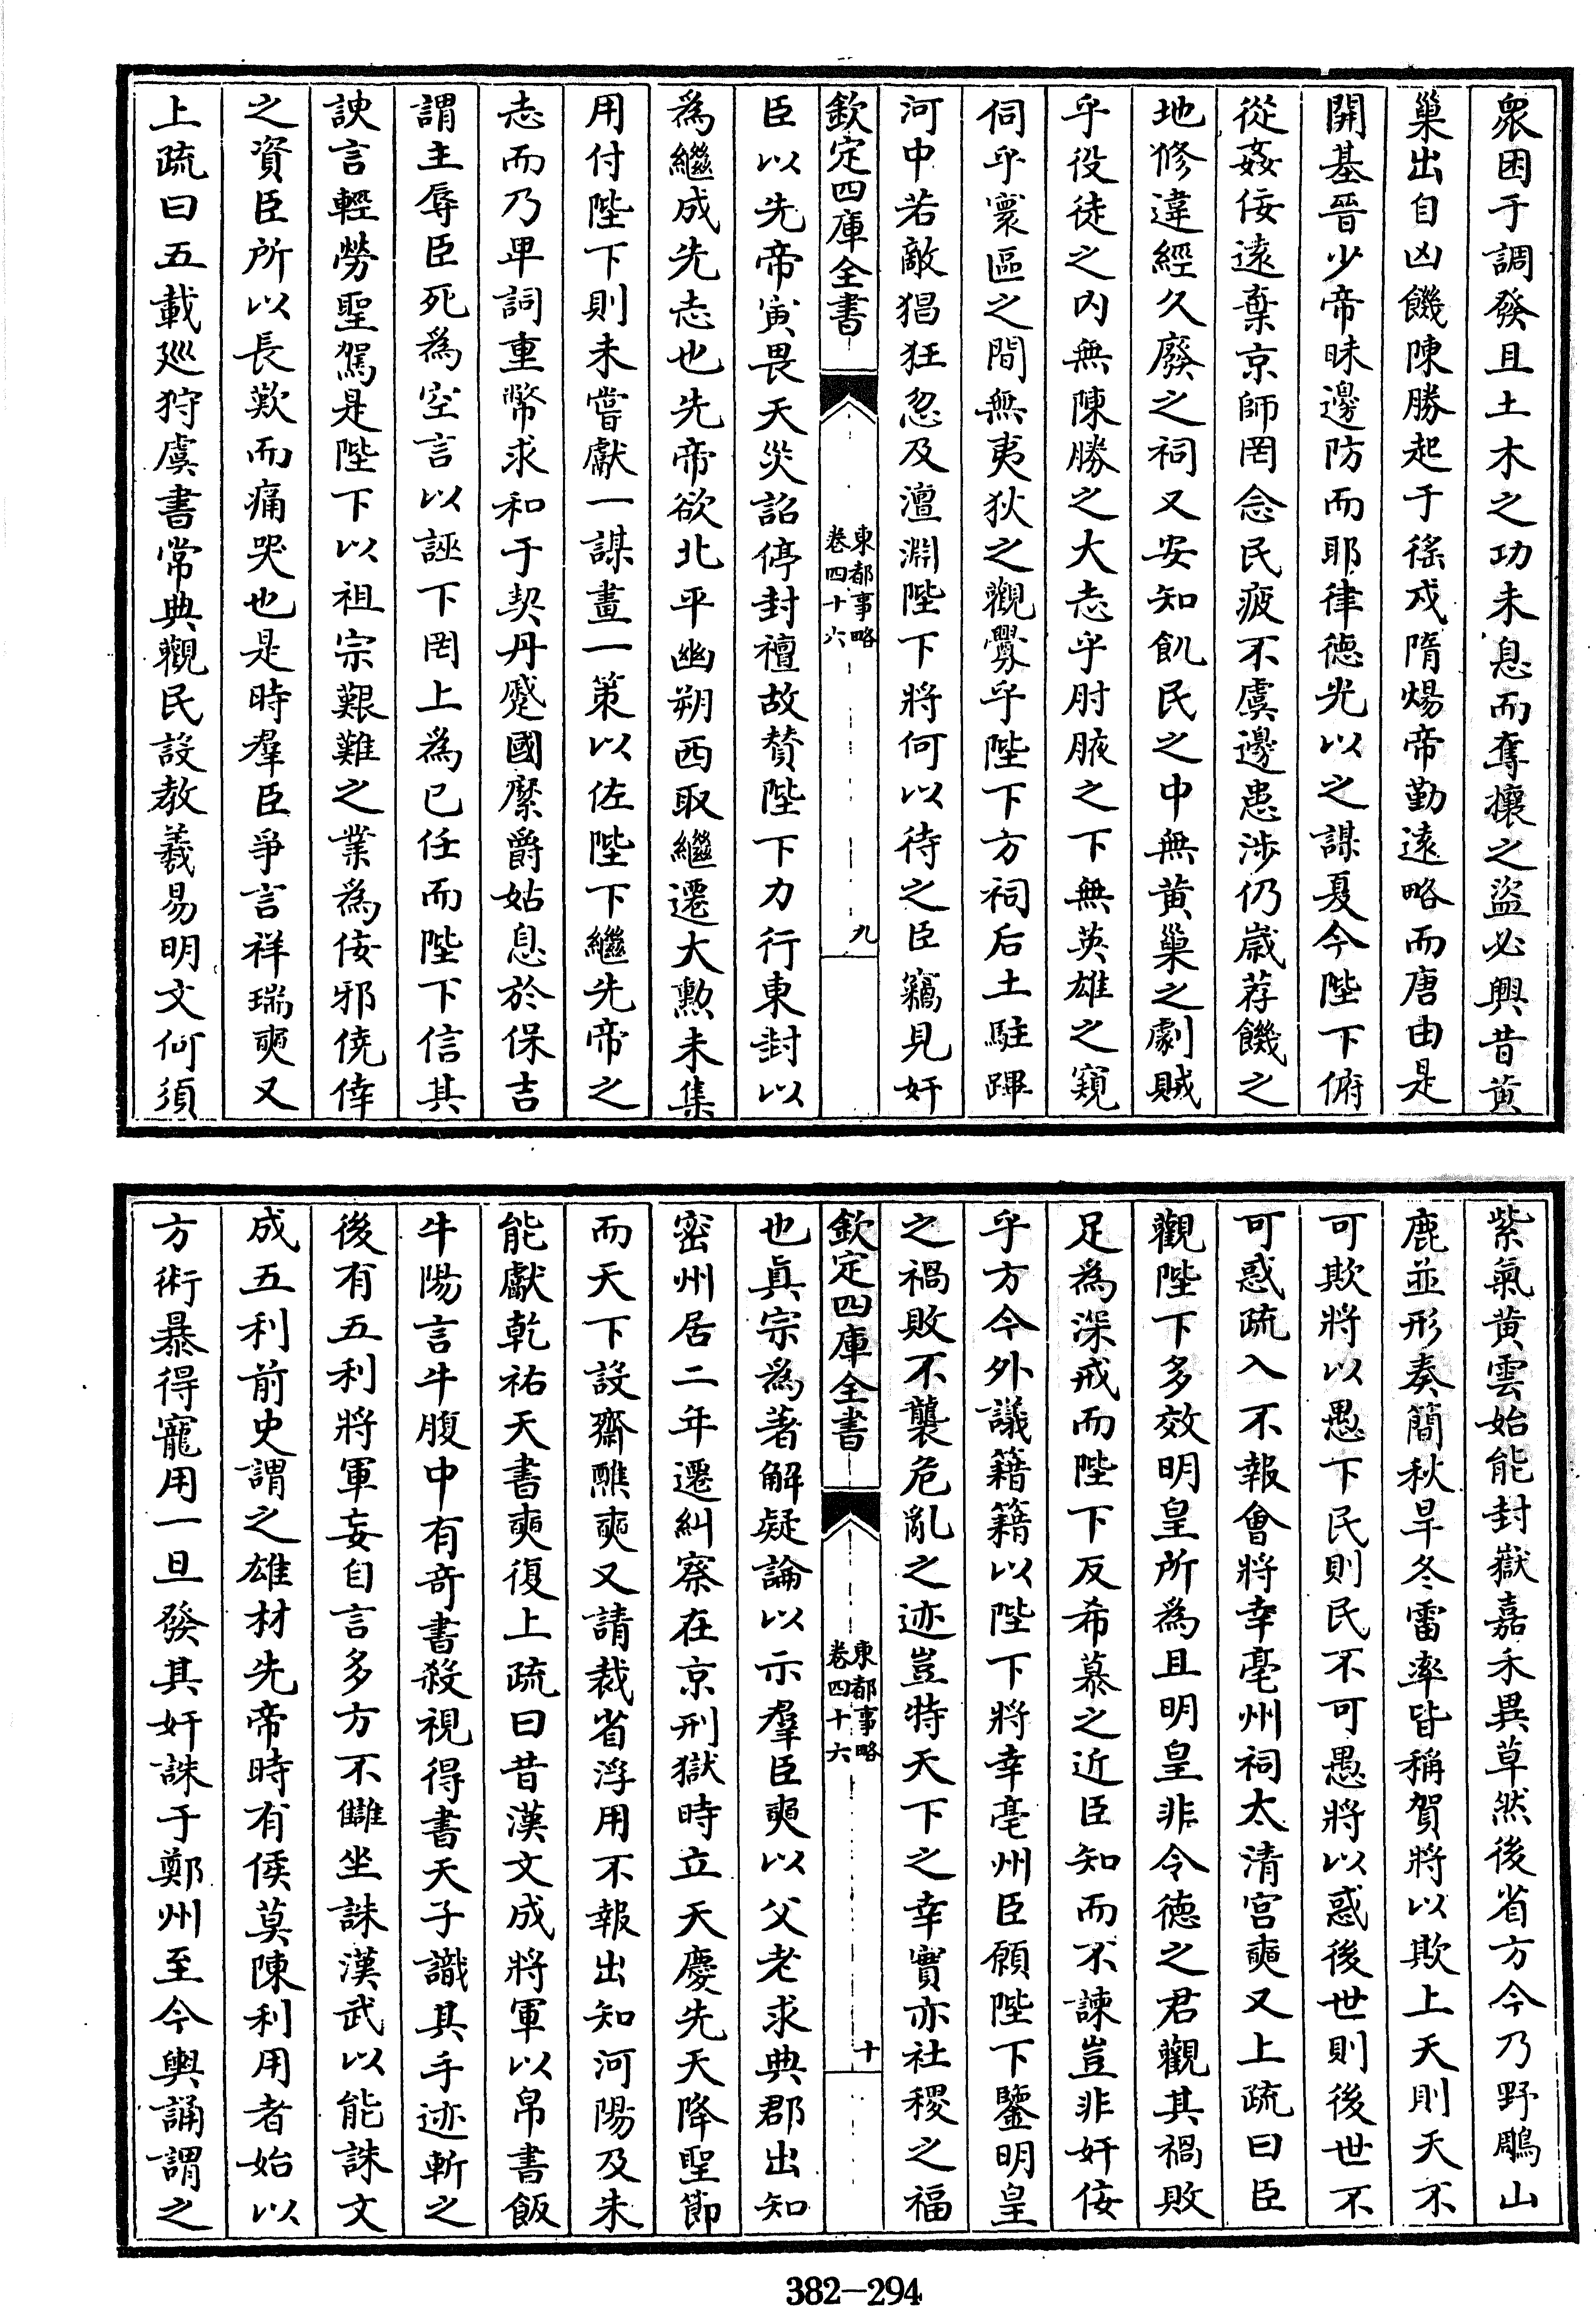 衆困于調發且土木之功未息而奪攘之盜必興昔黄
巢出自凶饑陳勝起于徭戍隋煬帝勤遠略而唐由是
開基晉少帝昧邊防而耶律德光以之謀夏今陛下俯
從姦佞遠棄京師罔念民疲不虞邊患涉仍歲荐饑之
地修違經久廢之祠又安知飢民之中無黄巢之劇賊
乎役徒之内無陳勝之大志乎肘腋之下無英雄之窺
伺乎寰區之間無夷狄之觀釁乎陛下方祠后土駐蹕
河中若敵猖狂忽及澶淵陛下將何以待之臣竊見奸
欽定四庫全書
東都事略
卷四十六
九
臣以先帝寅畏天災詔停封禪故贊陛下力行東封以
爲繼成先志也先帝欲北平幽朔西取繼遷大勲未集
用付陛下則未嘗獻一謀畫一策以佐陛下繼先帝之
志而乃卑詞重幣求和于契丹蹙國縻爵姑息於保吉
謂主辱臣死爲空言以誣下罔上爲已任而陛下信其
諛言輕勞聖駕是陛下以祖宗艱難之業爲佞邪僥倖
之資臣所以長歎而痛哭也是時羣臣爭言祥瑞奭又
上疏曰五載廵狩虞書常典觀民設教羲易明文何須
紫氣黄雲始能封嶽嘉禾異草然後省方今乃野鵰山
鹿並形奏簡秋旱冬雷率皆稱賀將以欺上天則天不
可欺將以愚下民則民不可愚將以惑後世則後世不
可惑疏入不報會將幸亳州祠太清宫奭又上疏曰臣
觀陛下多效明皇所爲且明皇非令德之君觀其禍敗
足爲深戒而陛下反希慕之近臣知而不諫豈非奸佞
乎方今外議籍籍以陛下將幸亳州臣願陛下鑒明皇
之禍敗不襲危亂之迹豈特天下之幸實亦社稷之福
欽定四庫全書
東都事略
卷四十六
十
也眞宗爲著解疑論以示羣臣奭以父老求典郡出知
密州居二年遷糾察在京刑獄時立天慶先天降聖節
而天下設齋醮奭又請裁省浮用不報出知河陽及朱
能獻乾祐天書奭復上疏曰昔漢文成將軍以帛書飯
牛陽言牛腹中有奇書殺視得書天子識其手迹斬之
後有五利將軍妄自言多方不讎坐誅漢武以能誅文
成五利前史謂之雄材先帝時有侯莫陳利用者始以
方術暴得寵用一旦發其奸誅于鄭州至今輿誦謂之
382-294